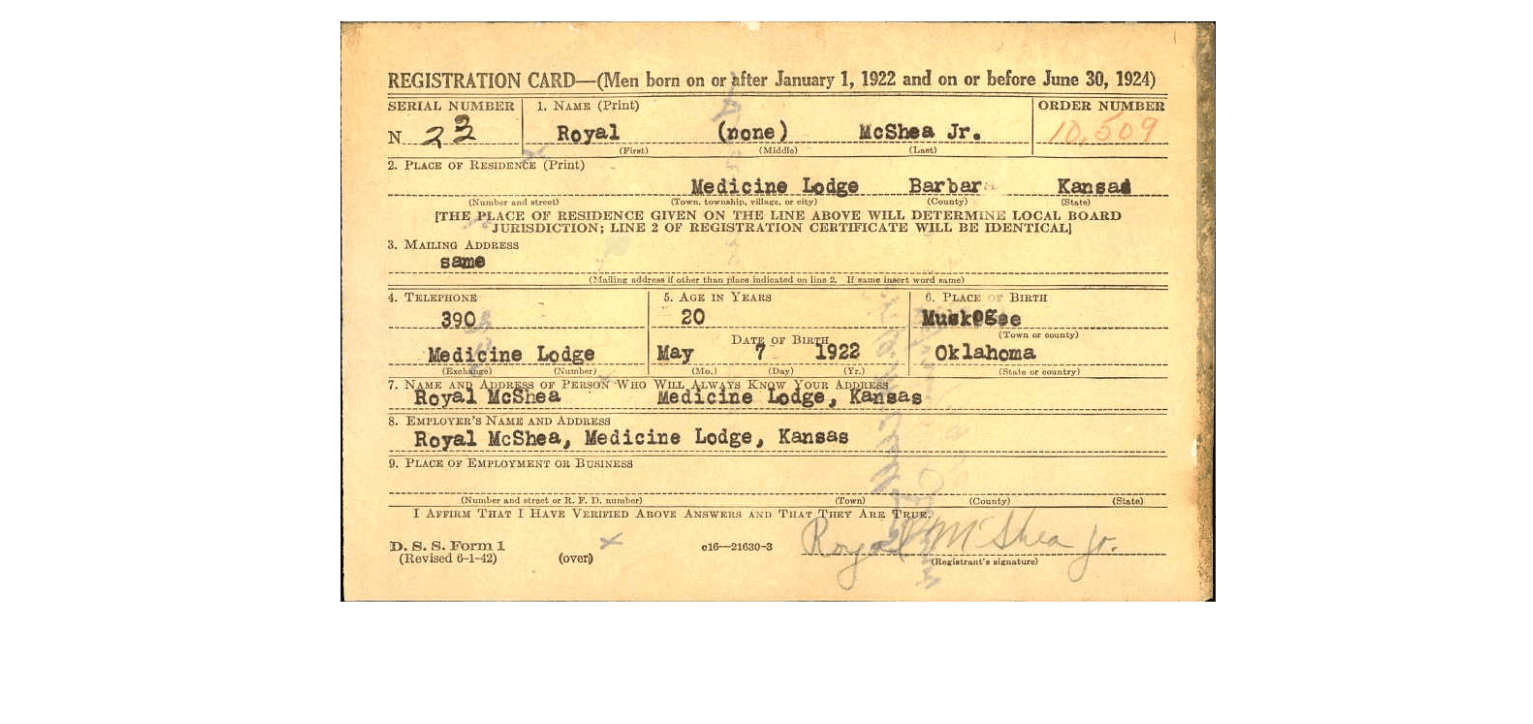 REGISTRATION CARD—(Men born on or after January 1, 1922 and on or before June 30, 1924)
SERIAL NUMBER 1. NAME (Print) ORDER NUMBER
N 23 Royal (none) McShea Jr. 10,509
(First) (Middle) (Last)
2. PLACE OF RESIDENCE (Print)
Medicine Lodge Barbar Kansas
(Number and street) (Town, township, village, or city) (County) (State)
[THE PLACE OF RESIDENCE GIVEN ON THE LINE ABOVE WILL DETERMINE LOCAL BOARD
JURISDICTION; LINE 2 OF REGISTRATION CERTIFICATE WILL BE IDENTICAL]
3. MAILING ADDRESS
same
(Mailing address if other than place indicated on line 2. If same insert word same)
4. TELEPHONE 5. AGE IN YEARS 6. PLACE OF BIRTH
390 20 Muskogee
(Town or county)
DATE OF BIRTH
Medicine Lodge May 7 1922 Oklahoma
(Exchange) (Number) (Mo.) (Day) (Yr.) (State or country)
7. NAME AND ADDRESS OF PERSON WHO WILL ALWAYS KNOW YOUR ADDRESS
Royal McShea Medicine Lodge, Kansas
8. EMPLOYER'S NAME AND ADDRESS
Royal McShea, Medicine Lodge, Kansas
9. PLACE OF EMPLOYMENT OR BUSINESS
(Number and street or R. F. D. number) (Town) (County) (State)
I AFFIRM THAT I HAVE VERIFIED ABOVE ANSWERS AND THAT THEY ARE TRUE.
D. S. S. Form 1 c16—21630-3 Royal McShea Jr.
(Revised 6-1-42) (over) (Registrant's signature)